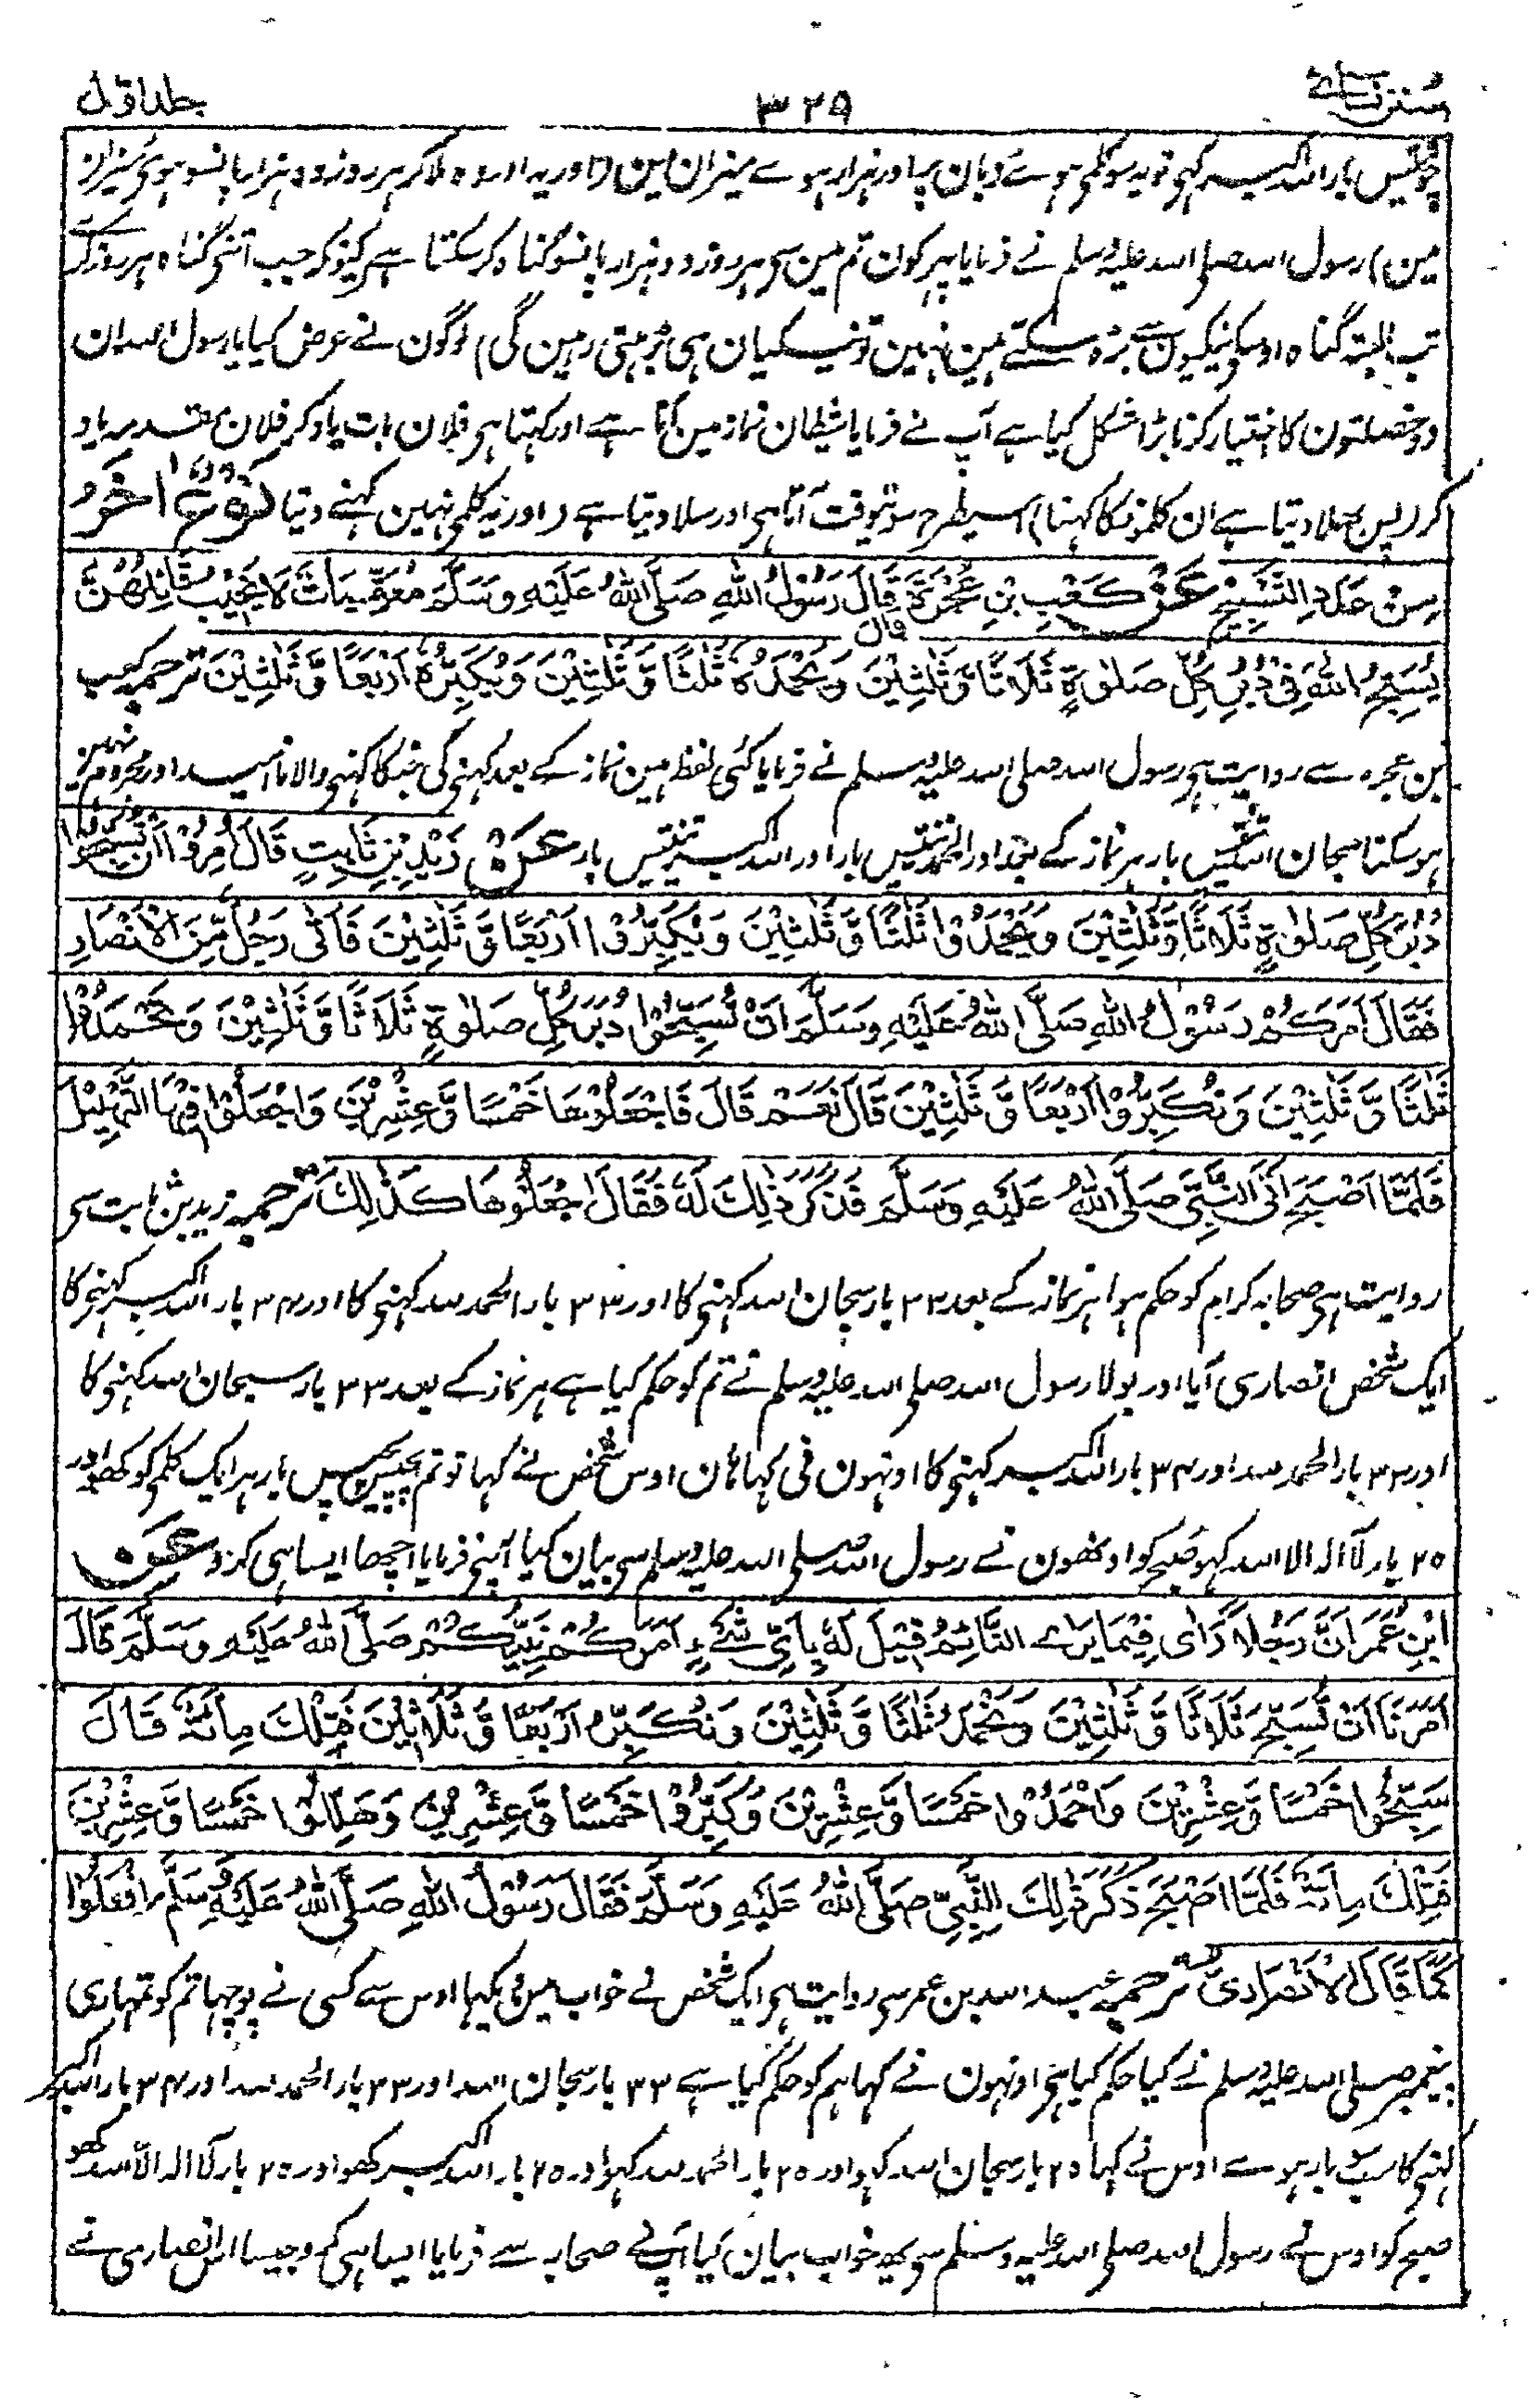 سنن نسائے ۳۲۹ جلد اوّل
چونتیس بار اللہ اکبر کہی تو یہ سو کلمی ہوئے زبان پر اور ہزار ہوے میزان مین (اور یہ اور وہ ملا کر ہر روز دو ہزار پانسو ہوئی میزان
مین) رسول اللہ صلی اللہ علیہ وسلم نے فرمایا پہر کون تم مین سی ہر روز دو ہزار پانسو گناہ کر سکتا ہے کیونکر جب اتنی گناہ ہر روز کرے
تب البتہ گناہ اوسکی نیکیون سے بڑہ سکتے ہین نہین تو نیکیان ہی بڑہتی رہین گی) لوگون نے عرض کیا یا رسول اللہ ان
دو خصلتون کا اختیار کرنا بڑا مشکل کیا ہے آپ نے فرمایا شیطان نماز مین آتا ہے اور کہتا ہی فلان بات یاد کر فلان مقدمہ یاد
کر (پس بھلا دیتا ہے ان کلمونکا کہنا) اسیطرح سوتیوقت آتا ہی اور سلا دیتا ہے (اور یہ کلمی نہین کہنے دیتا نَوْعٌ اٰخَرُ
مِنْ عَدَدِ التَّسْبِيْحِ عَنْ كَعْبِ بْنِ عُجْرَةَ قَالَ قَالَ رَسُوْلُ اللّٰهِ صَلَّى اللّٰهُ عَلَيْهِ وَسَلَّمَ مُعَقِّبَاتٌ لَا يَخِيْبُ قَائِلُهُنَّ
يُسَبِّحُ اللّٰهَ فِيْ دُبُرِ كُلِّ صَلٰوةٍ ثَلَاثًا وَّثَلٰثِيْنَ وَيَحْمَدُهٗ ثَلٰثًا وَّثَلٰثِيْنَ وَيُكَبِّرُهٗ اَرْبَعًا وَّثَلٰثِيْنَ ترجمہ کعب
بن عجرہ سے روایت ہی رسول اللہ صلی اللہ علیہ وسلم نے فرمایا کئی لفظ ہین نماز کے بعد کہنی کی جنکا کہنی والا ناامید اور محروم نہین
ہو سکتا سبحان اللہ تینتیس بار ہر نماز کے بعد اور الحمد تینتیس بار اور اللہ اکبر چونتیس بار عَنْ زَيْدِ بْنِ ثَابِتٍ قَالَ اُمِرُوْا اَنْ يُّسَبِّحُوْا
دُبُرَ كُلِّ صَلٰوةٍ ثَلَاثًا وَّثَلٰثِيْنَ وَيَحْمَدُوْا ثَلٰثًا وَّثَلٰثِيْنَ وَيُكَبِّرُوْا اَرْبَعًا وَّثَلٰثِيْنَ فَاَتٰى رَجُلٌ مِّنَ الْاَنْصَارِ
فَقَالَ اَمَرَكُمْ رَسُوْلُ اللّٰهِ صَلَّى اللّٰهُ عَلَيْهِ وَسَلَّمَ اَنْ تُسَبِّحُوْا دُبُرَ كُلِّ صَلٰوةٍ ثَلَاثًا وَّثَلٰثِيْنَ وَتَحْمَدُوْا
ثَلٰثًا وَّثَلٰثِيْنَ وَتُكَبِّرُوْا اَرْبَعًا وَّثَلٰثِيْنَ قَالَ نَعَمْ قَالَ فَاجْعَلُوْهَا خَمْسًا وَّعِشْرِيْنَ وَاجْعَلُوْا فِيْهَا التَّهْلِيْلَ
فَلَمَّا اَصْبَحَ اَتَى النَّبِيَّ صَلَّى اللّٰهُ عَلَيْهِ وَسَلَّمَ فَذَكَرَ ذٰلِكَ لَهٗ فَقَالَ اجْعَلُوْهَا كَذٰلِكَ ترجمہ زید بن ثابت سی
روایت ہی صحابہ کرام کو حکم ہوا ہر نماز کے بعد ۳۳ بار سبحان اللہ کہنی کا اور ۳۳ بار الحمد للہ کہنی کا اور ۳۴ بار اللہ اکبر کہنی کا
ایک شخص انصاری آیا اور بولا رسول اللہ صلی اللہ علیہ وسلم نے تم کو حکم کیا ہے ہر نماز کے بعد ۳۳ بار سبحان اللہ کہنی کا
اور ۳۳ بار الحمد للہ اور ۳۴ بار اللہ اکبر کہنی کا اونہون نی کہا ہان اوس شخص نے کہا تو تم پچیس پچیس بار ہر ایک کلمی کو کہو اور
۲۵ بار لا الہ الا اللہ کہو صبح کو اونھون نے رسول اللہ صلی اللہ علیہ وسلم سی بیان کیا آپنی فرمایا اچھا ایسا ہی کرو عَنِ
ابْنِ عُمَرَ اَنَّ رَجُلًا رَاٰى فِيْمَا يَرَى النَّائِمُ قِيْلَ لَهٗ بِاَيِّ شَيْءٍ اَمَرَكُمْ نَبِيُّكُمْ صَلَّى اللّٰهُ عَلَيْهِ وَسَلَّمَ قَالَ
اَمَرَنَا اَنْ نُّسَبِّحَ ثَلَاثًا وَّثَلٰثِيْنَ وَنَحْمَدُ ثَلٰثًا وَّثَلٰثِيْنَ وَنُكَبِّرُ اَرْبَعًا وَّثَلَاثِيْنَ فَتِلْكَ مِائَةٌ قَالَ
سَبِّحُوْا خَمْسًا وَّعِشْرِيْنَ وَاحْمَدُوْا خَمْسًا وَّعِشْرِيْنَ وَكَبِّرُوْا خَمْسًا وَّعِشْرِيْنَ وَهَلِّلُوْا خَمْسًا وَّعِشْرِيْنَ
فَتِلْكَ مِائَةٌ فَلَمَّا اَصْبَحَ ذَكَرَ ذٰلِكَ لِلنَّبِيِّ صَلَّى اللّٰهُ عَلَيْهِ وَسَلَّمَ فَقَالَ رَسُوْلُ اللّٰهِ صَلَّى اللّٰهُ عَلَيْهِ وَسَلَّمَ افْعَلُوْا
كَمَا قَالَ الْاَنْصَارِيُّ ترجمہ عبد اللہ بن عمر سی روایت ہی ایک شخص نے خواب مین دیکہا اوس سے کسی نے پوچہا تم کو تمہاری
پیغمبر صلی اللہ علیہ وسلم نے کیا حکم کیا ہی اونہون نے کہا ہم کو حکم کیا ہے ۳۳ بار سبحان اللہ اور ۳۳ بار الحمد للہ اور ۳۴ بار اللہ اکبر
کہنی کا سب سو بار ہوے اوس نے کہا ۲۵ بار سبحان اللہ کہو اور ۲۵ بار الحمد للہ کہو اور ۲۵ بار اللہ اکبر کھو اور ۲۵ بار لا الہ الا اللہ کھو
صبح کو اوس نے رسول اللہ صلی اللہ علیہ وسلم سی یہ خواب بیان کیا آپ نے صحابہ سے فرمایا ایسا ہی کہو جیسا اس انصاری نے